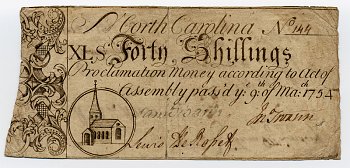 North Carolina No 144
XLS Forty Shillings
Proclamation Money according to Act of
Assembly pass'd ye 9th Mach 1754
Lewis De Rosset